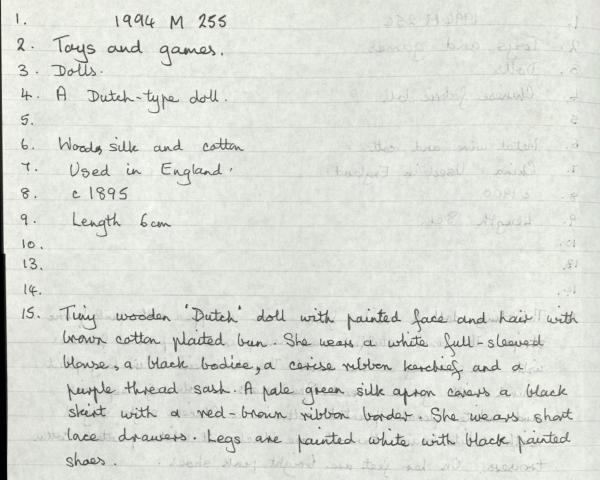 1. 1994 M 255
2. Toys and games.
3. Dolls.
4. A Dutch-type doll.
5.
6. Wood, silk and cotton
7. Used in England.
8. c 1895
9. Length 6cm
10.
13.
14.
15. Tiny wooden 'Dutch' doll with painted face and hair with
brown cotton plaited bun. She wears a white full-sleeved
blouse, a black bodice, a cerise ribbon kerchief and a
purple thread sash. A pale green silk apron covers a black
skirt with a red-brown ribbon border. She wears short
lace drawers. Legs are painted white with black painted
shoes.